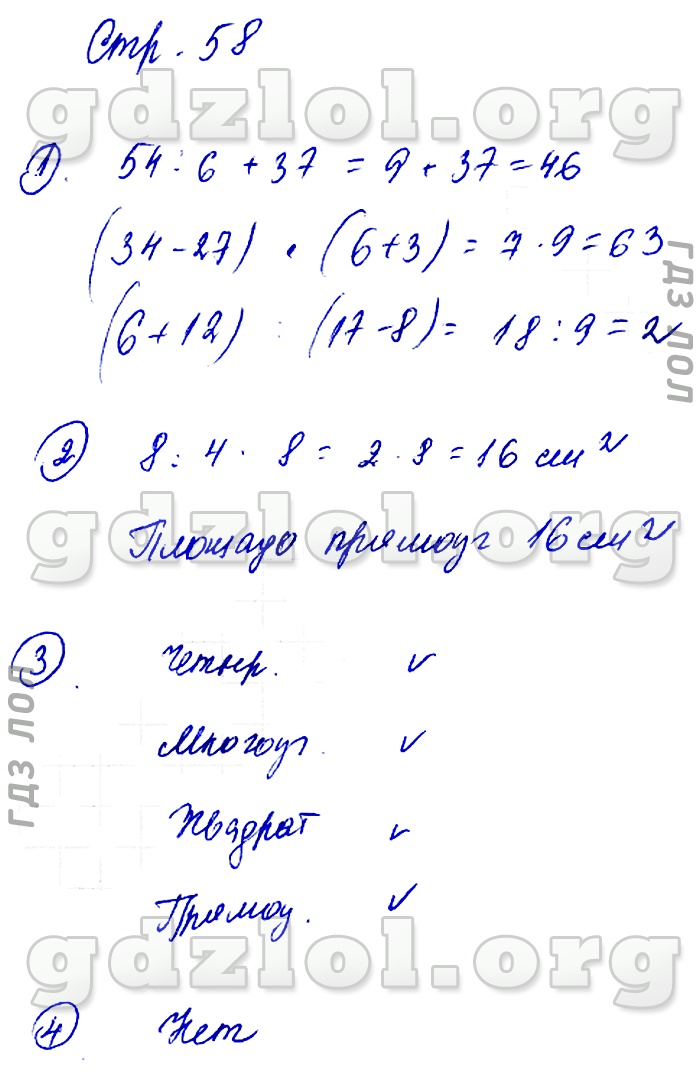 Стр. 58
gdzlol.org
1). 54 : 6 + 37 = 9 + 37 = 46
(34 - 27) · (6 + 3) = 7 · 9 = 63
(6 + 12) : (17 - 8) = 18 : 9 = 2
ГДЗ ЛОЛ
2 8 : 4 · 8 = 2 · 8 = 16 см²
gdzlol.org
Площадь прямоуг 16 см²
3. Четыр. ✓
ГДЗ ЛОЛ
Многоуг. ✓
Квадрат ✓
Прямоу. ✓
gdzlol.org
4 Нет